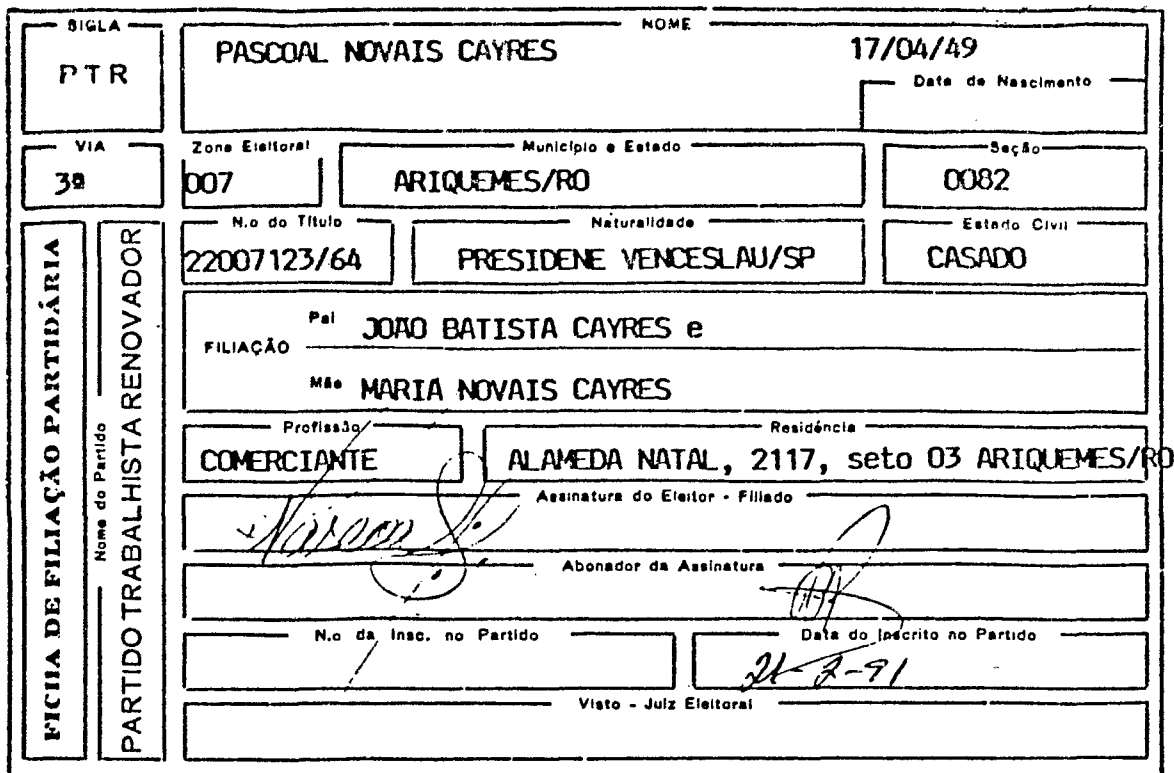 SIGLA
PTR
NOME
PASCOAL NOVAIS CAYRES 17/04/49
Data de Nascimento
VIA
3ª
Zona Eleitoral
007
Município e Estado
ARIQUEMES/RO
Seção
0082
FICHA DE FILIAÇÃO PARTIDÁRIA
Nome do Partido
PARTIDO TRABALHISTA RENOVADOR
N.o do Título
22007123/64
Naturalidade
PRESIDENE VENCESLAU/SP
Estado Civil
CASADO
FILIAÇÃO
Pai JOAO BATISTA CAYRES e
Mãe MARIA NOVAIS CAYRES
Profissão
COMERCIANTE
Residência
ALAMEDA NATAL, 2117, seto 03 ARIQUEMES/RO
Assinatura do Eleitor - Filiado
Abonador da Assinatura
N.o da Insc. no Partido
Data do Inscrito no Partido
21-2-91
Visto - Juiz Eleitoral